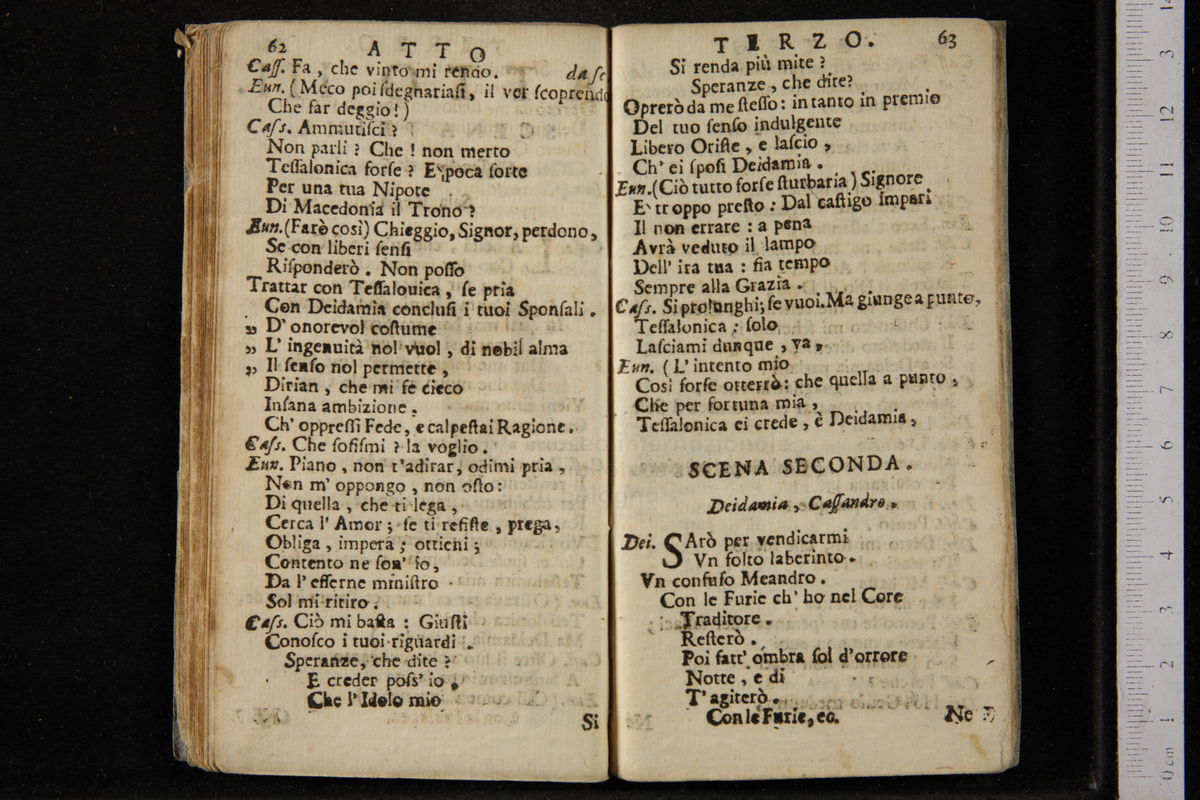 62 ATTO
Caſſ. Fa, che vinto mi rendo. da ſe
Eun. (Meco poi ſdegnariaſi, il ver ſcoprendo
Che far deggio!)
Caſs. Ammutiſci?
Non parli? Che! non merto
Teſſalonica forſe? E' poca ſorte
Per una tua Nipote
Di Macedonia il Trono?
Eun. (Farò così) Chieggio, Signor, perdono,
Se con liberi ſenſi
Riſponderò. Non poſſo
Trattar con Teſſalouica, ſe pria
Con Deidamia concluſi i tuoi Sponſali.
„ D' onorevol coſtume
„ L' ingenuità nol vuol, di nobil alma
„ Il ſenſo nol permette,
Dirian, che mi fe cieco
Inſana ambizione,
Ch' oppreſſi Fede, e calpeſtai Ragione.
Caſs. Che ſofiſmi? la voglio.
Eun. Piano, non t'adirar, odimi pria,
Non m' oppongo, non oſto:
Di quella, che ti lega,
Cerca l' Amor; ſe ti reſiſte, prega,
Obliga, impera; ottieni;
Contento ne ſon' io,
Da l' eſſerne miniſtro
Sol mi ritiro.
Caſs. Ciò mi baſta: Giuſti
Conoſco i tuoi riguardi.
Speranze, che dite?
E creder poſs' io,
Che l' Idolo mio
Si
TERZO. 63
Si renda più mite?
Speranze, che dite?
Oprerò da me ſteſſo: in tanto in premio
Del tuo ſenſo indulgente
Libero Oriſte, e laſcio,
Ch' ei ſpoſi Deidamia.
Eun. (Ciò tutto forſe ſturbaria) Signore
E' troppo preſto: Dal caſtigo impari
Il non errare: a pena
Avrà veduto il lampo
Dell' ira tua: fia tempo
Sempre alla Grazia.
Caſs. Si prolunghi; ſe vuoi. Ma giunge a punto,
Teſſalonica; ſolo
Laſciami dunque, va,
Eun. (L' intento mio
Così forſe otterrò: che quella a punto,
Che per fortuna mia,
Teſſalonica ei crede, è Deidamia,
SCENA SECONDA.
Deidamia, Caſſandro.
Dei. SArò per vendicarmi
Vn folto laberinto.
Vn confuſo Meandro.
Con le Furie ch' ho nel Core
Traditore.
Reſterò.
Poi fatt' ombra ſol d'orrore
Notte, e dì
T' agiterò.
Con le Furie, ec.
Ne